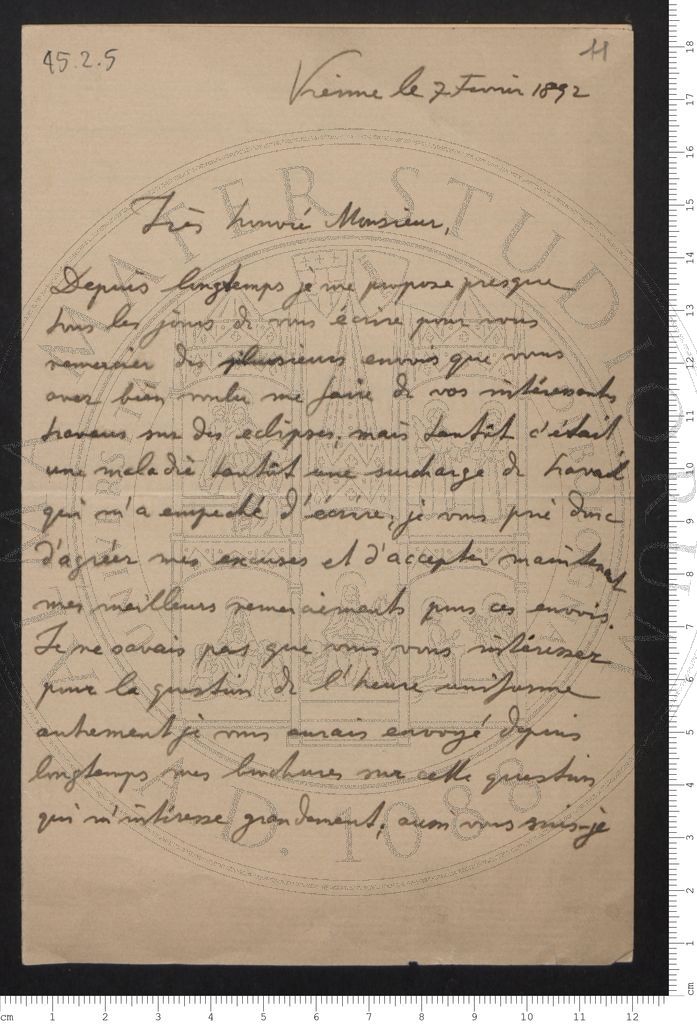 45.2.5
11
Vienne le 7 Fevrier 1892
Très honoré Monsieur,
Depuis longtemps je me propose presque
tous les jours de vous écrire pour vous
remercier des plusieurs envois que vous
avez bien voulu me faire de vos intéressants
travaux sur des eclipses; mais tantôt c'était
une maladie tantôt une surcharge de travail
qui m'a empeché d'écrire; je vous prie donc
d'agréer mes excuses et d'accepter maintenant
mes meilleurs remerciements pour ces envois.
Je ne savais pas que vous vous intéressez
pour la question de l'heure uniforme
autrement je vous aurais envoyé depuis
longtemps mes brochures sur cette question
qui m'intéresse grandement; aussi vous suis-je
ALMA MATER STUDIORUM
A.D. 1088
cm 1 2 3 4 5 6 7 8 9 10 11 12
cm 1 2 3 4 5 6 7 8 9 10 11 12 13 14 15 16 17 18